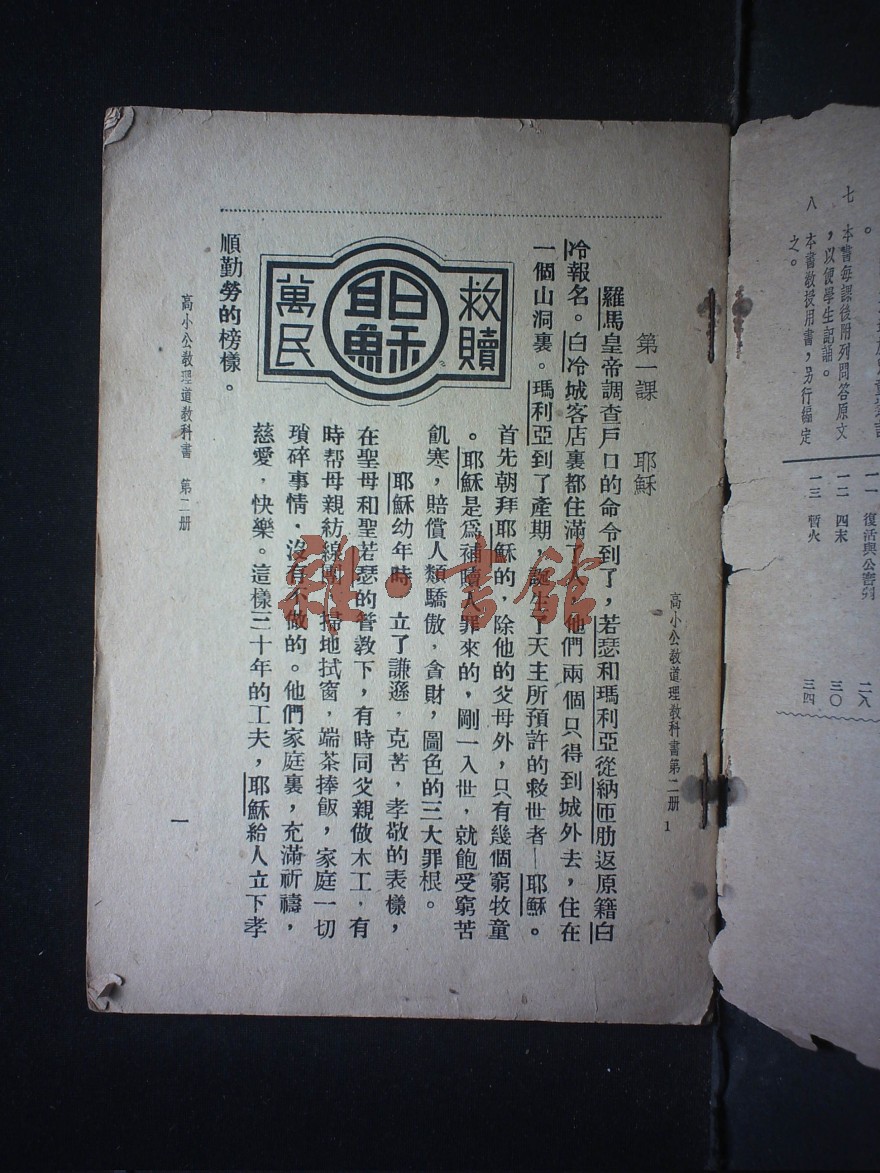 七　本書每課後附列問答原文
，以便學生記誦。
八　本書敎授用書，另行編定
之。
一一　復活與公審判　二八
一二　四末　三〇
一三　暫火　三四
高小公敎道理敎科書第二册　1
第一課　耶穌
羅馬皇帝調查戶口的命令到了，若瑟和瑪利亞從納匝肋返原籍白
冷報名。白冷城客店裏都住滿了人，他們兩個只得到城外去，住在
一個山洞裏。瑪利亞到了產期，誕生了天主所預許的救世者—耶穌。
救贖
耶穌
萬民
首先朝拜耶穌的，除他的父母外，只有幾個窮牧童
。耶穌是爲補贖人罪來的，剛一入世，就飽受窮苦
飢寒，賠償人類驕傲，貪財，圖色的三大罪根。
耶穌幼年時，立了謙遜，克苦，孝敬的表樣，
在聖母和聖若瑟的管敎下，有時同父親做木工，有
時帮母親紡線團，掃地拭窗，端茶捧飯，家庭一切
瑣碎事情，沒有不做的。他們家庭裏，充滿祈禱，
慈愛，快樂。這樣三十年的工夫，耶穌給人立下孝
順勤勞的榜樣。
高小公敎理道敎科書　第二册
一
雜·書館